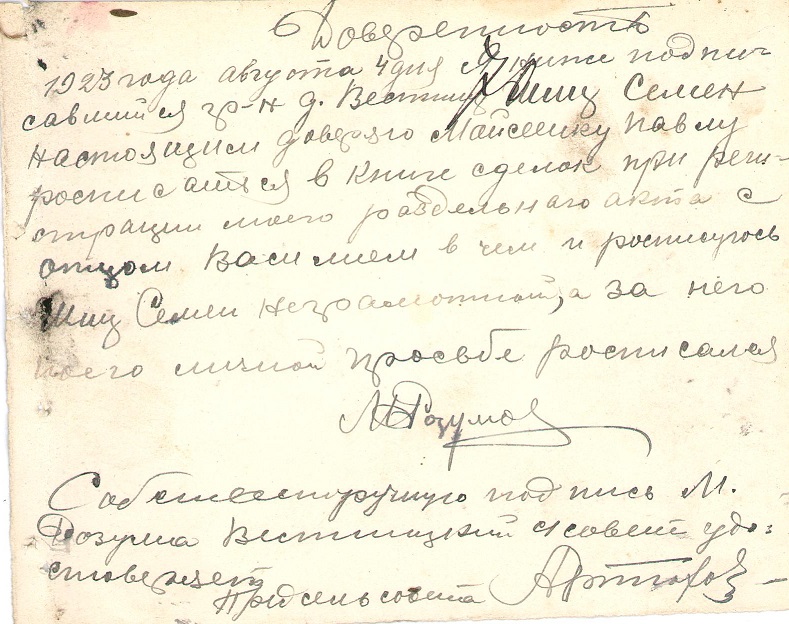 Доверенность
1923 года августа 4 дня Я ниже подпи
савшийся гр-н д. Вестицы Шиц Семен
настоящим доверяю Майсеенку Павлу
росписаться в книге сделок при реги-
страции моего раздельнаго акта с
отцом Василием в чем и росписуюсь
Шиц Семен неграмотной, а за него
по его личной прозьбе росписался
М Розумов
Собственноручную подпись М.
Розума Вестицкий с/совет удо-
стоверяет
Предсельсовета